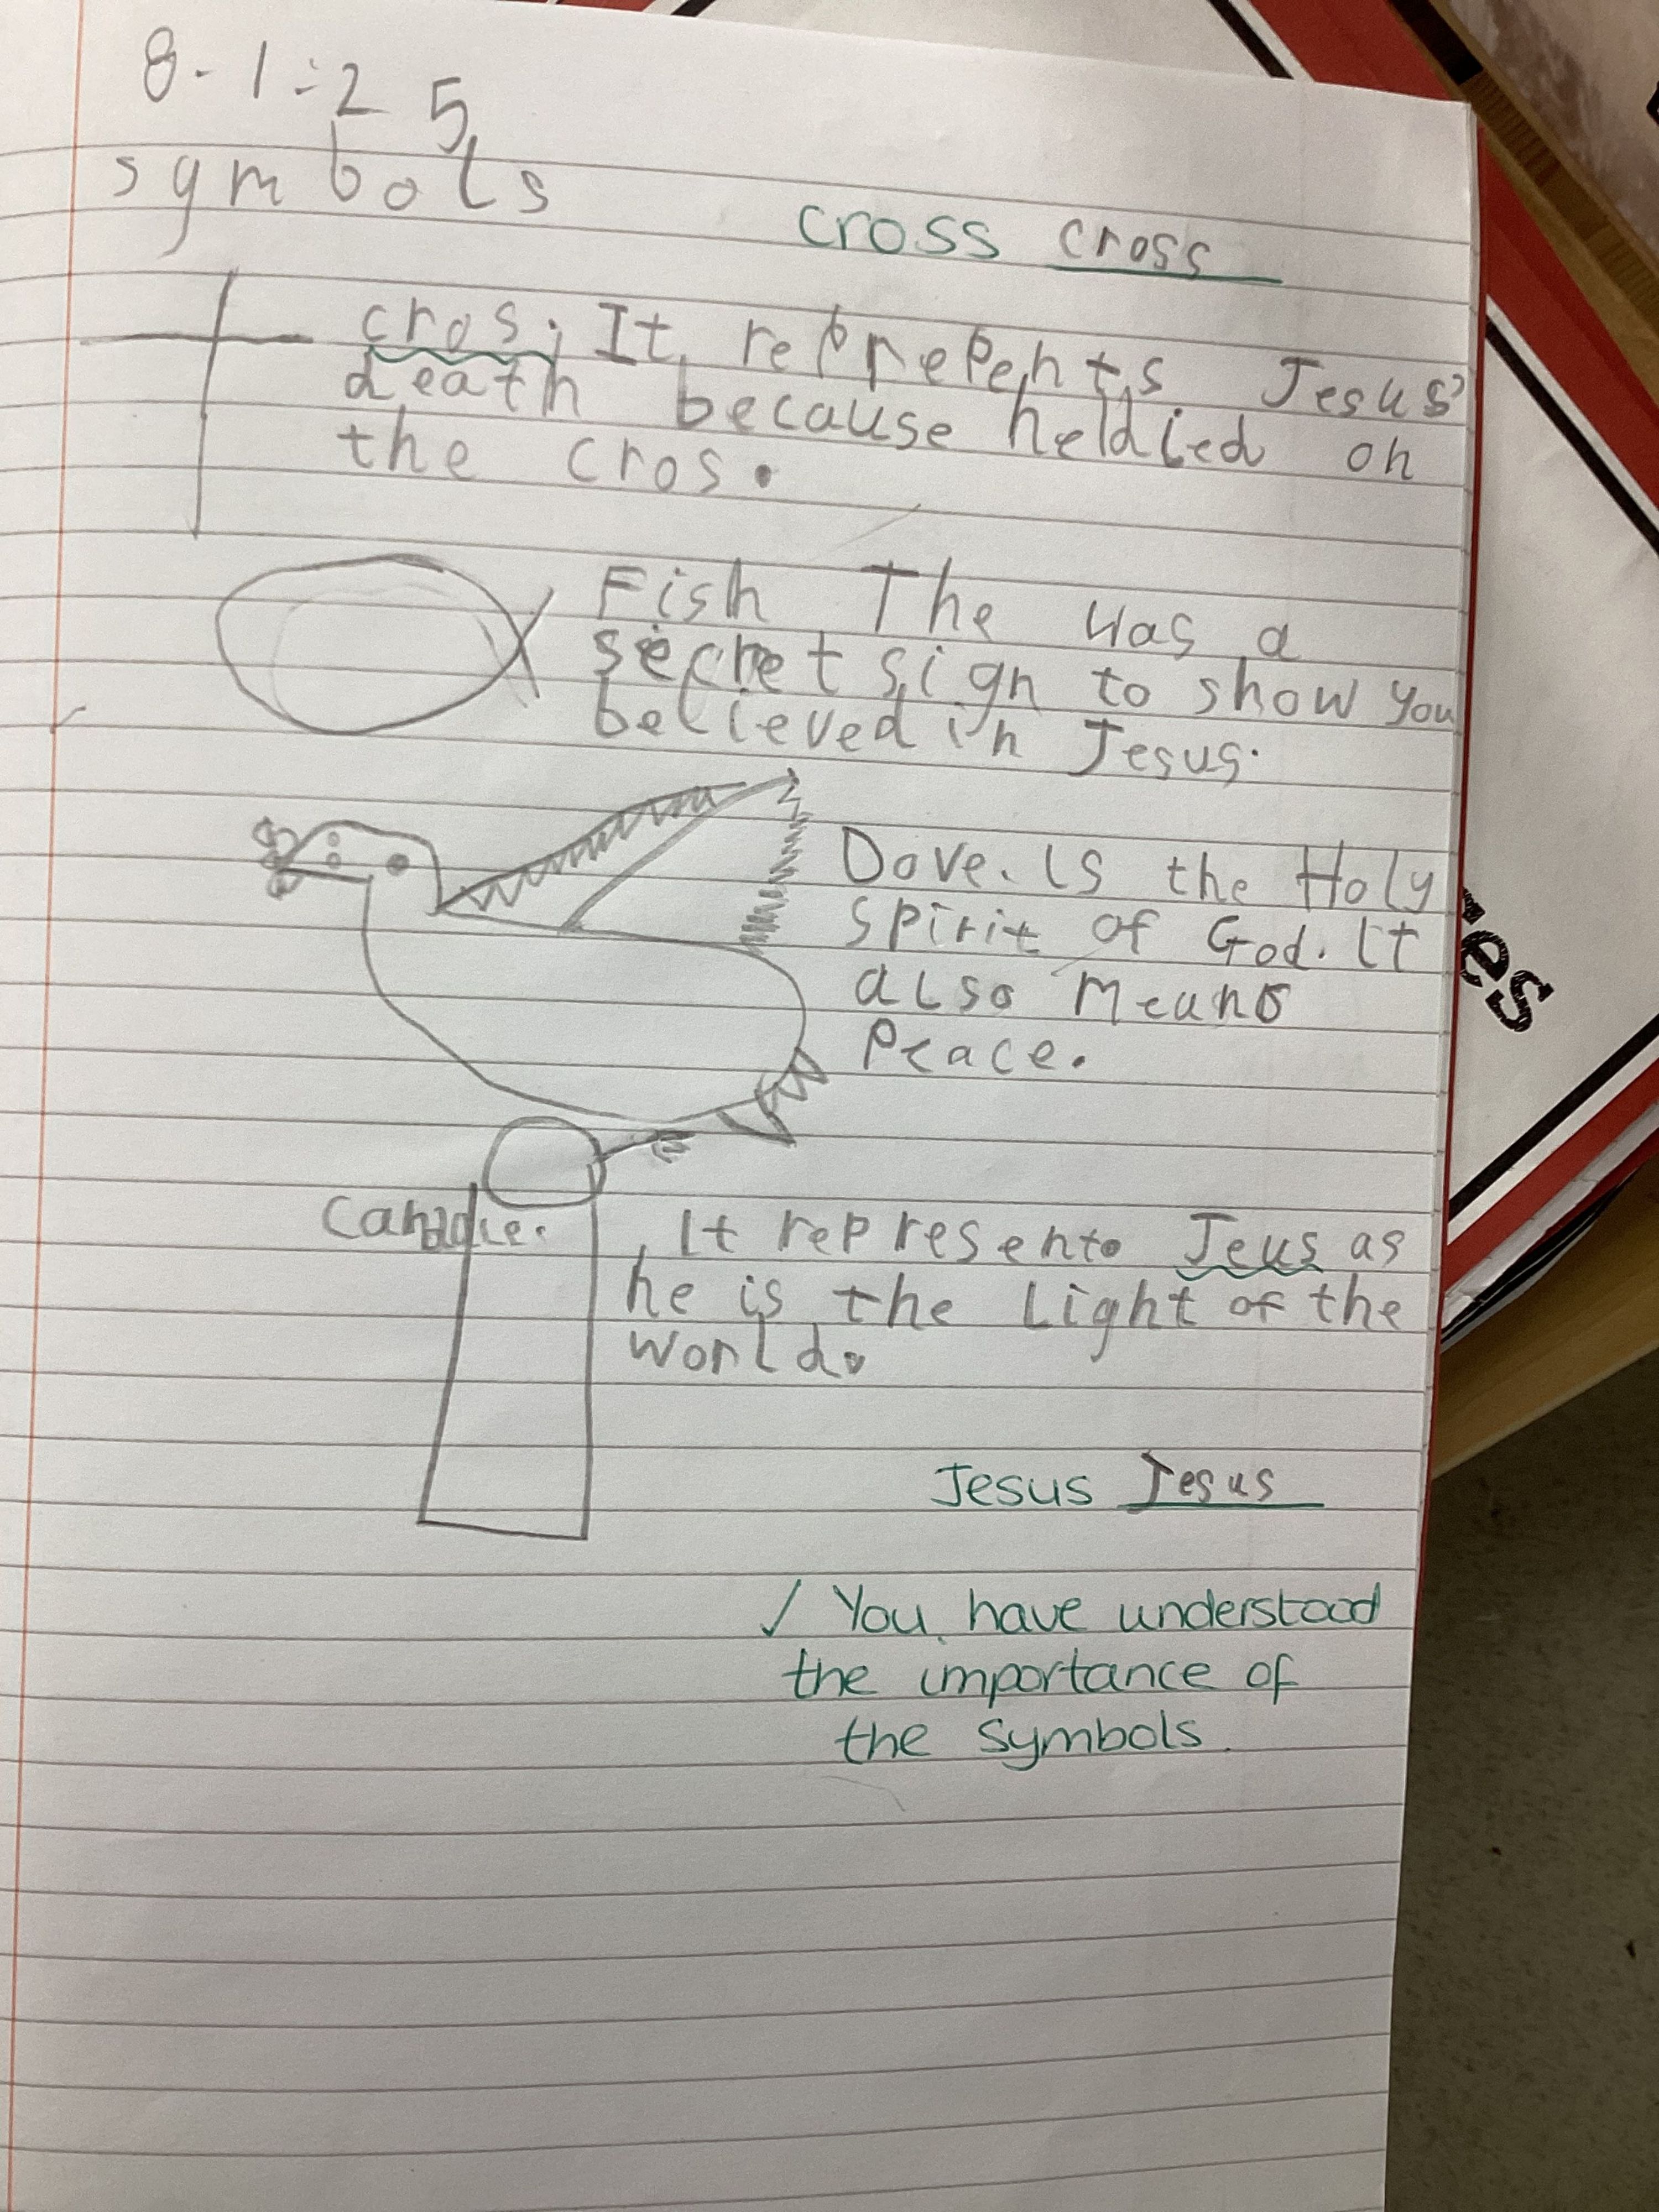 8-1-25
symbols
cross cross
cros. It reprepents Jesus'
death because he died on
the cros.
Fish The was a
secret sign to show you
believed in Jesus.
Dove. Is the Holy
spirit of God. It
also means
Peace.
Candle. It represents Jeus as
he is the Light of the
world.
Jesus Jesus
✓ You have understood
the importance of
the symbols.
es